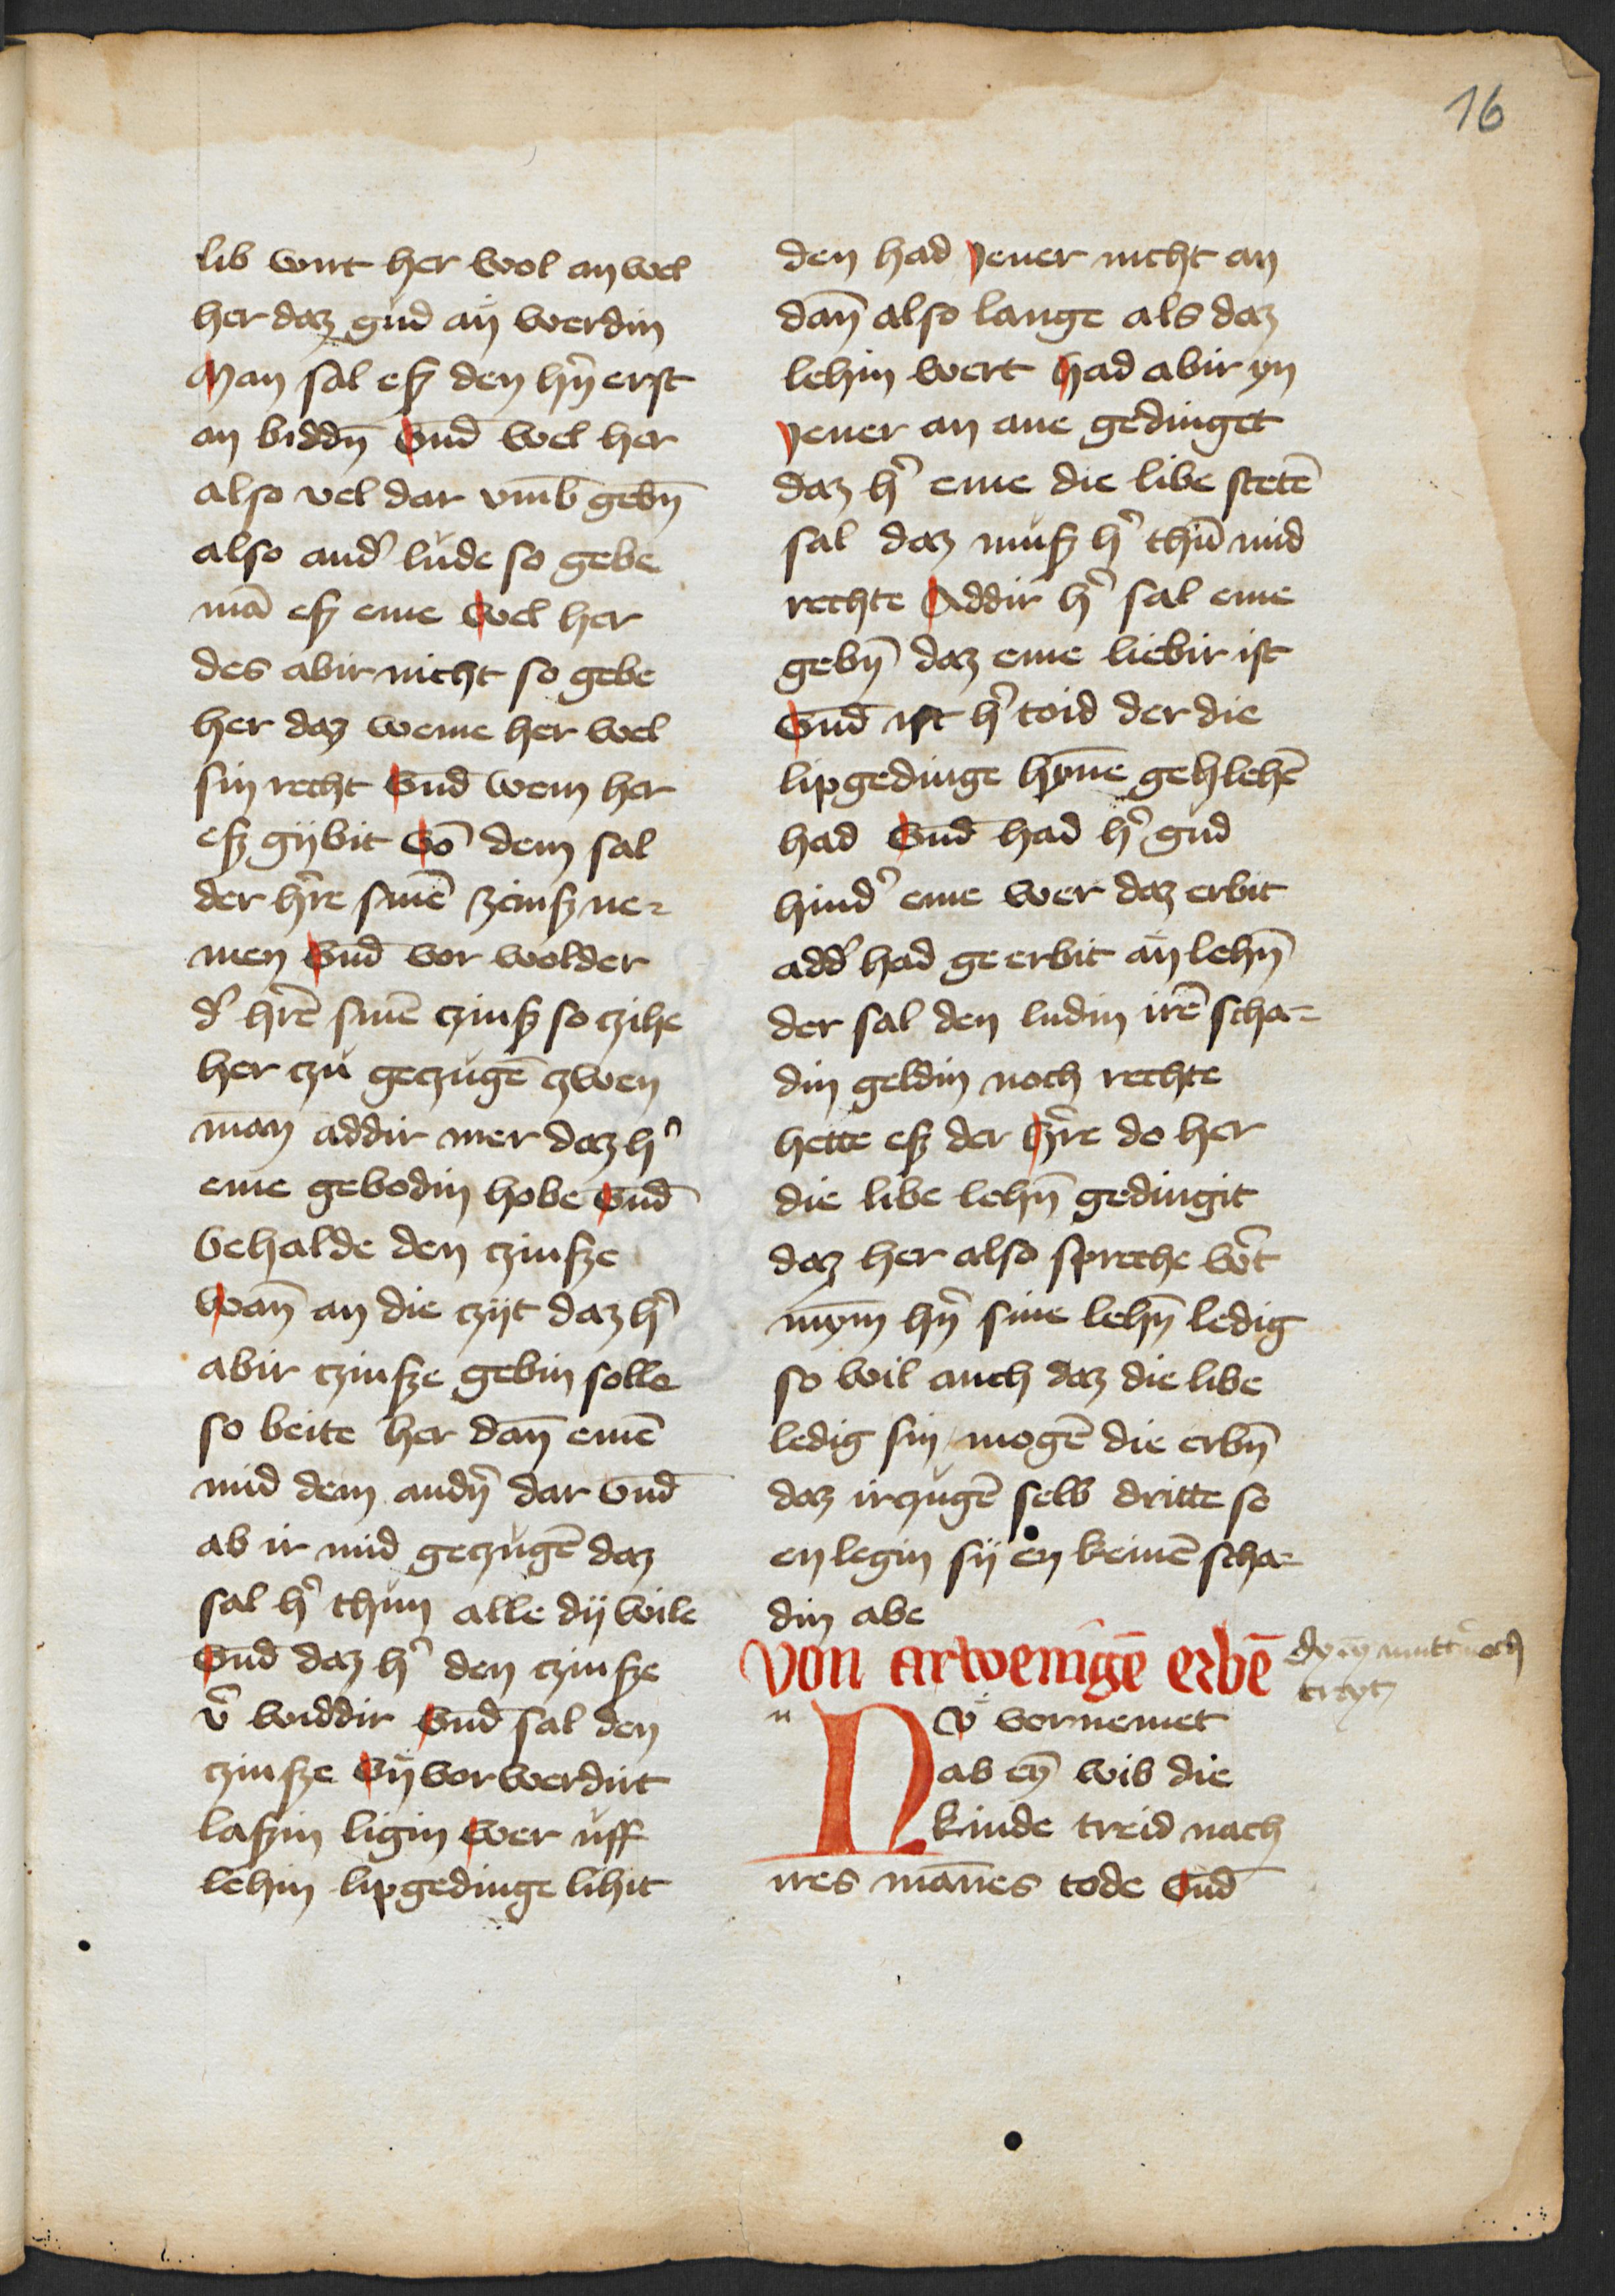 16
lib wirt her wol an wel
her daz gud an werdin
Man sal esz den hn̄ erst
an biddn̄ Vnd̄ wel her
also vel dar vm̄b gebn̄
also and' lude so gebe
mā esz eme Wel her
des abir nicht so gebe
her daz weme her wel
sin recht Vnd̄ wem her
esz gijbit Vō dem sal
der h're sinē zcinsz ne-
men Vnd̄ vor wolder
d' hrē sinē czinsz so czihe
her czů geczugē czwen
man addir mer daz h'
eme gebodin hobe Vnd̄
behalde den czinsze
Wan̄ an die czijt daz h'
abir czinsze gebin solle
so beite her dan̄ einē
mid dem andn̄ dar Vnd̄
ab ir mid geczugē daz
sal h' thun alle dij wile
Vnd̄ daz h' den czinsze
v' widdir Vnd̄ sal den
czinsze Vij vorwerdirt
laszin ligin Wer uff
lehin lipgedinge lihit
den had Jener nicht an
dan̄ also lange als daz
lehin wert Had abir yn
Jener an ane gedinget
daz h' eme die libe stetē
sal daz musz h' thūn mid
rechte Addir h' sal eme
gebn̄ daz eme liebir ist
Vnd̄ ist h' toid der die
lipgedinge hyn̄e gehlehē
had Vnd̄ had h' gud
hind' eme wer daz erbit
add' had ge erbit an lehn̄
der sal den ludin irē scha-
din geldin noch rechte
hette esz der H're do her
die libe lehn̄ gedingit
daz her also spreche w't
mȳm hn̄ sine lehn̄ ledig
so wil auch daz die libe
ledig sin mogē die erbn̄
daz irczugē selb dritte so
en legin sij en keinē scha-
din abe
Von arwenigē erbē
dy yn mutt' noch
treyt
n
NV vornemet
ab eyn̄ wib die
kinde treid nach
ires man̄es tode Vnd̄